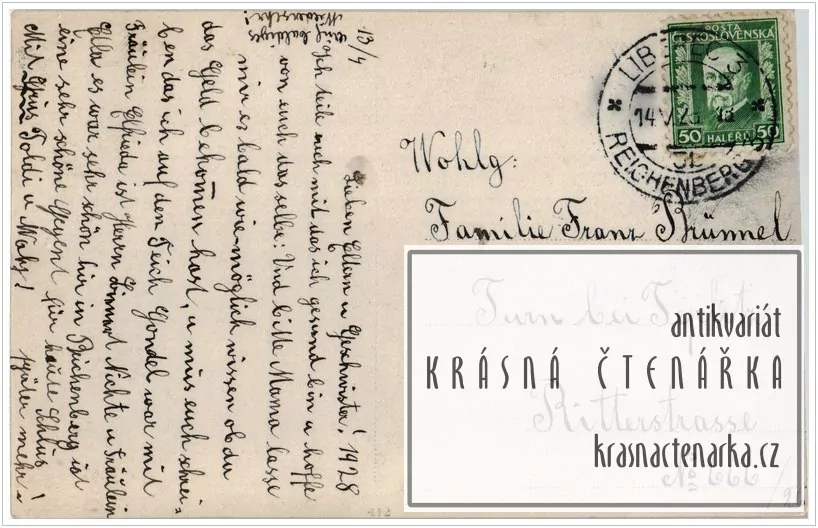 13/4
Lieben Eltern u Geschwister! 1928
Ich teile euch mit das ich gesund bin u hoffe
von euch das selbe. Und bitte Mama lasse
mir es bald wie möglich wissen ob du
das Geld bekomen hast, u mus euch schrei-
ben das ich auf den Teich Gondel war mit
Fräulein Elfriede ist Herrn Nichte u Fräulein
Ella es war sehr schön hir in Reichenberg ist
eine sehr schöne Gegent für haute Schlus
Mit Grus Poldi u Maly! später mehr!
auf baldiges
Wiedersehn!
POŠTA
ČESKOSLOVENSKA
50 HALERU 50
LIBEREC 3
14.V.28
REICHENBERG
Wohlg:
Familie Franz Brünnel
Turn bei Teplitz
Ritterstrasse
No 666
antikvariát
KRÁSNÁ ČTENÁŘKA
krasnactenarka.cz